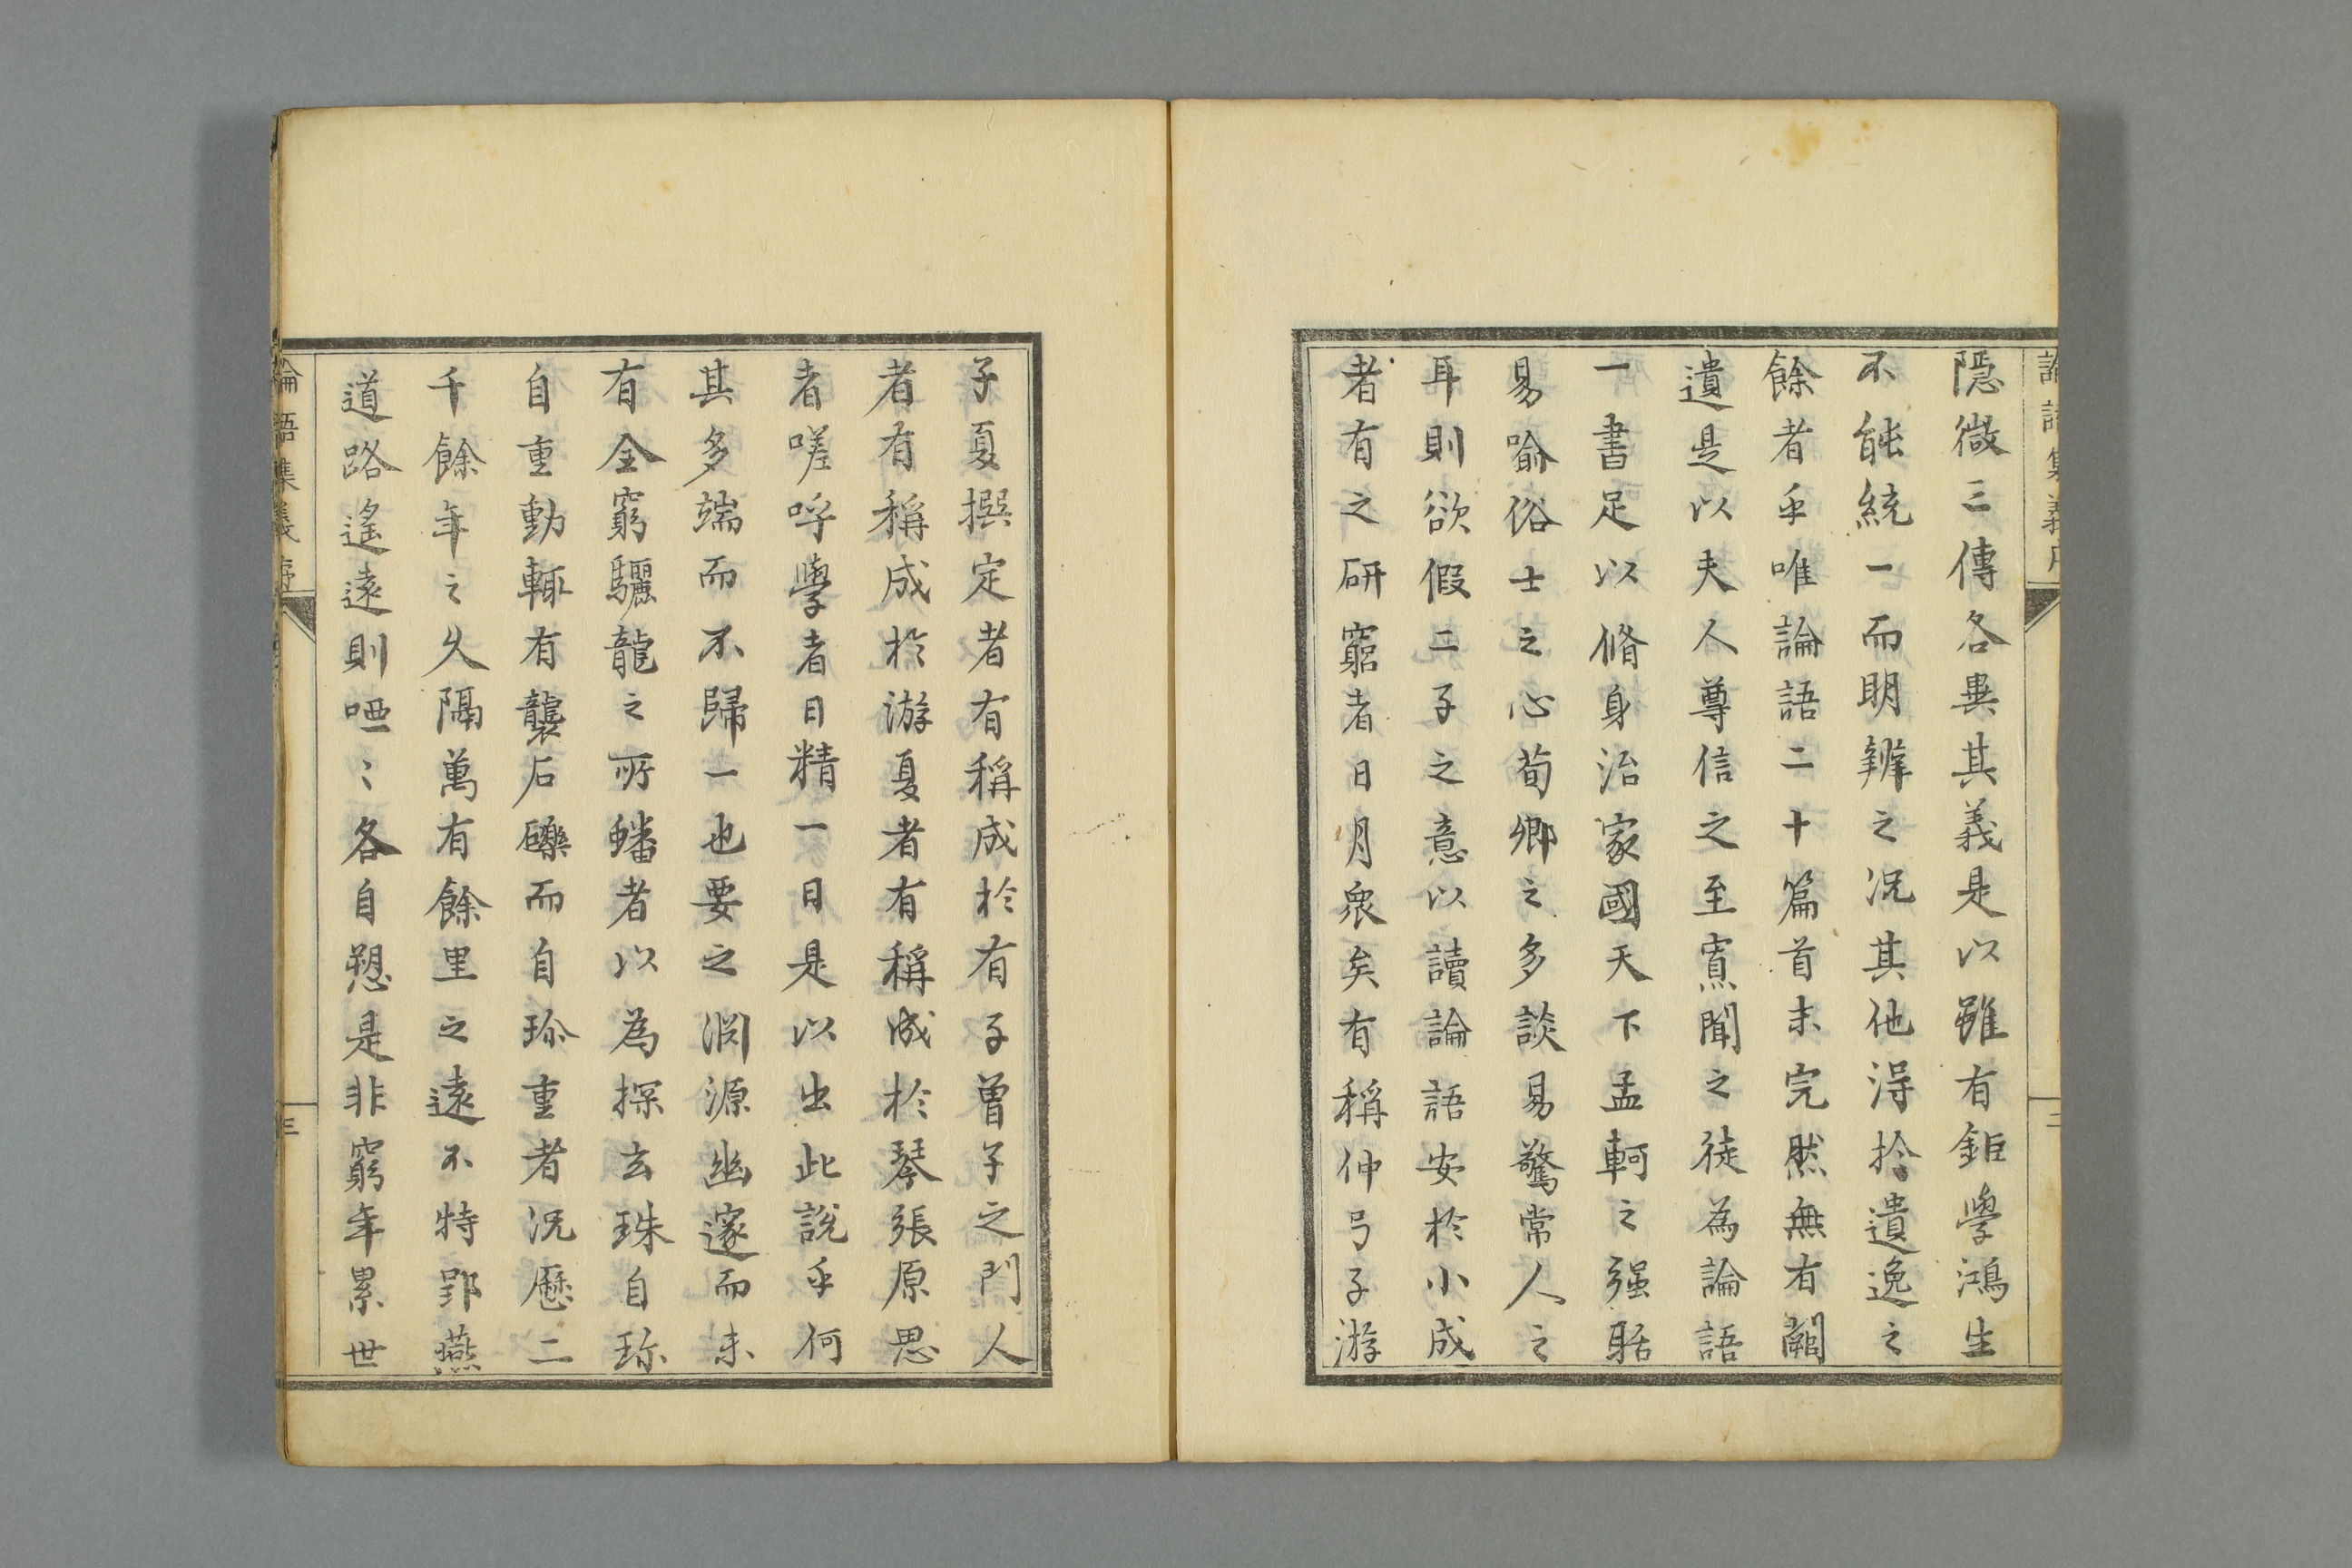 論語集義序
二
隱微三傳各異其義是以雖有鉅學鴻生
不能統一而明辨之况其他淂拾遺逸之
餘者乎唯論語二十篇首末完然無有闕
遺是以夫人尊信之至寡聞之徒為論語
一書足以脩身治家國天下孟軻之强聒
易喻俗士之心荀卿之多談易驚常人之
耳則欲假二子之意以讀論語安於小成
者有之研窮者日月衆矣有稱仲弓子游
子夏撰定者有稱成於有子曾子之門人
者有稱成於游夏者有稱成於琴張原思
者嗟呼學者日精一日是以出此說乎何
其多端而不歸一也要之淵源幽邃而未
有全窮驪龍之所蟠者以為探玄珠自珎
自重動輙有襲石礫而自珎重者况歷二
千餘年之久隔萬有餘里之遠不特郢燕
道路遙遠則哑〻各自愬是非窮年累世
論語集義序
三